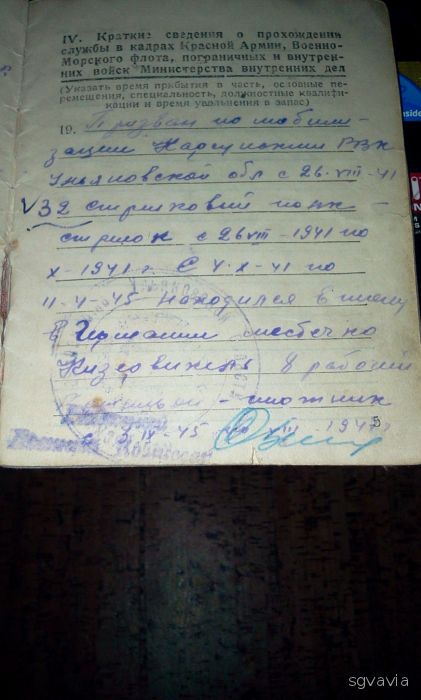 IV. Краткие сведения о прохождении
службы в кадрах Красной Армии, Военно-
Морского флота, пограничных и внутрен-
них войск Министерства внутренних дел
(Указать время прибытия в часть, основные пе-
ремещения, специальность, должностные квалифи-
кации и время увольнения в запас)
19. Призван по мобили-
зации РВК
Ульяновской обл с 26.VIII-41
V 32 стрелковый полк -
стрелок с 26 VIII-1941 по
X-1941 г. С 4.X-41 по
11-4-45 находился в плену
в Германии местечко
8 рабочий
5
1941
sgvavia